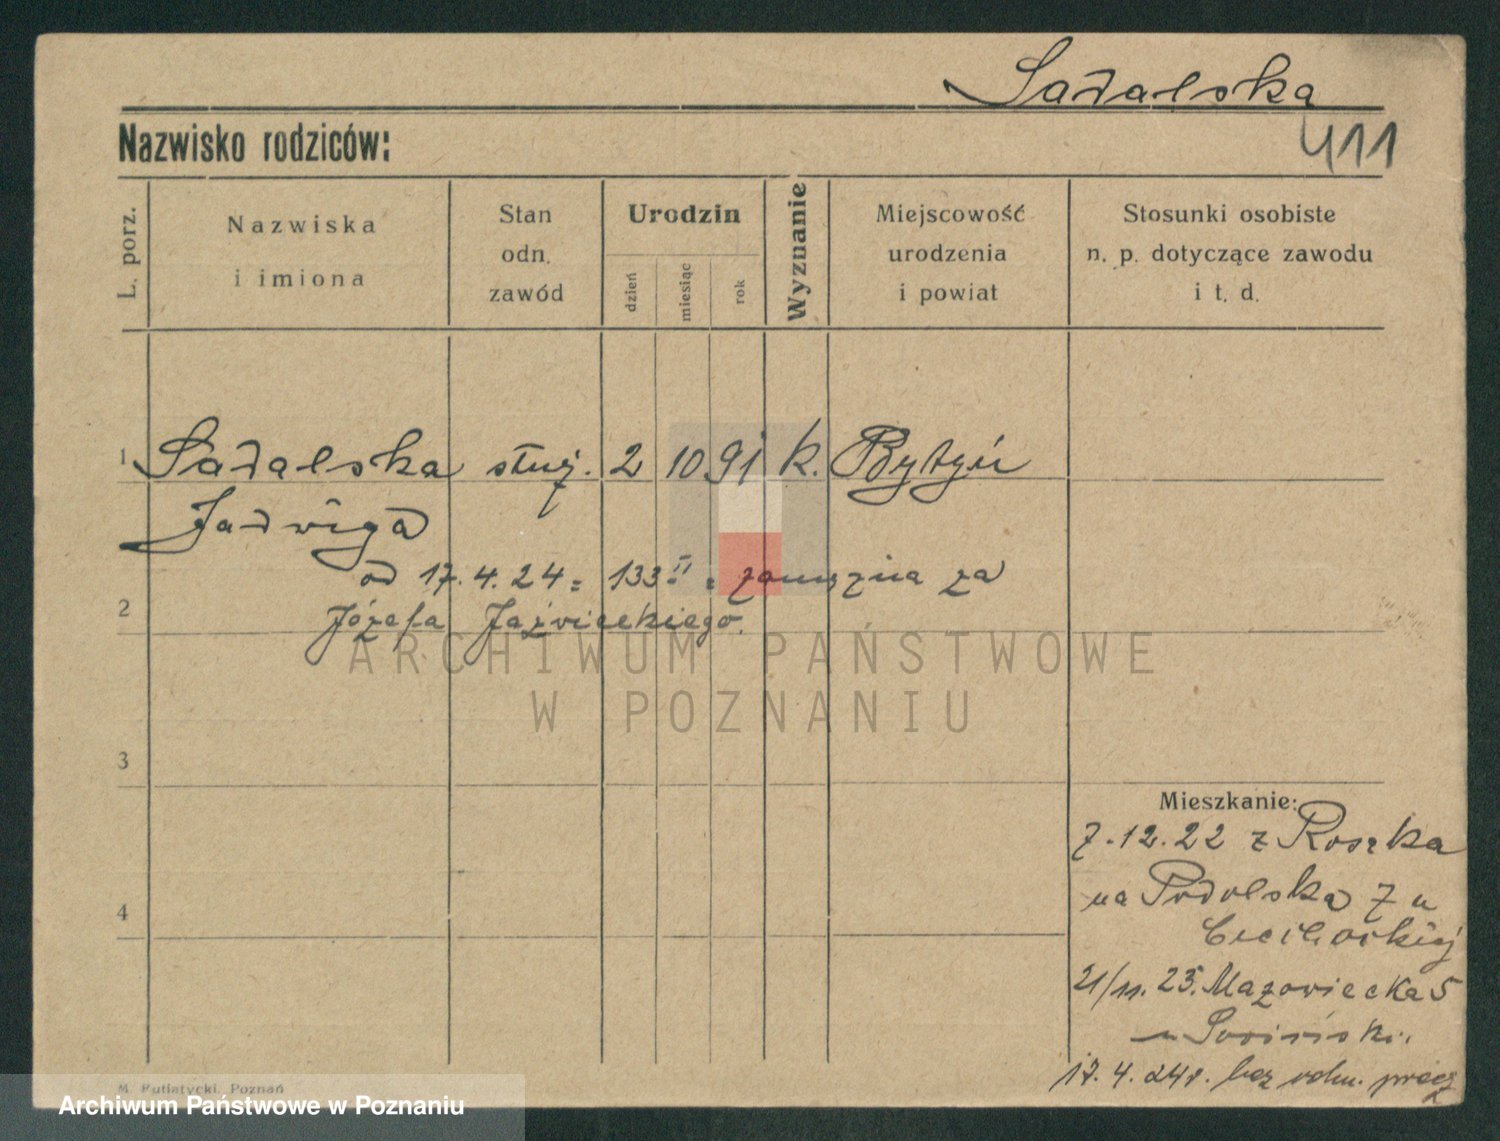 Sadalska
411
Nazwisko rodziców:
L. porz.
Nazwiska
i imiona
Stan
odn.
zawód
Urodzin
dzień
miesiąc
rok
Wyznanie
Miejscowość
urodzenia
i powiat
Stosunki osobiste
n. p. dotyczące zawodu
i t. d.
1 Sadalska służ. 2 10 91 k. Bytyń
Jadwiga
od 17.4.24 = 133 II. zamężna za
2 Józefa Jaźwieckiego.
ARCHIWUM PAŃSTWOWE
W POZNANIU
3
Mieszkanie:
7.12.22 z Roszka
na Podolska 7 u
4
21/11. 23. Mazowiecka 5
u
17.4.24r. bez odm. precz
M. Putiatycki, Poznań
Archiwum Państwowe w Poznaniu